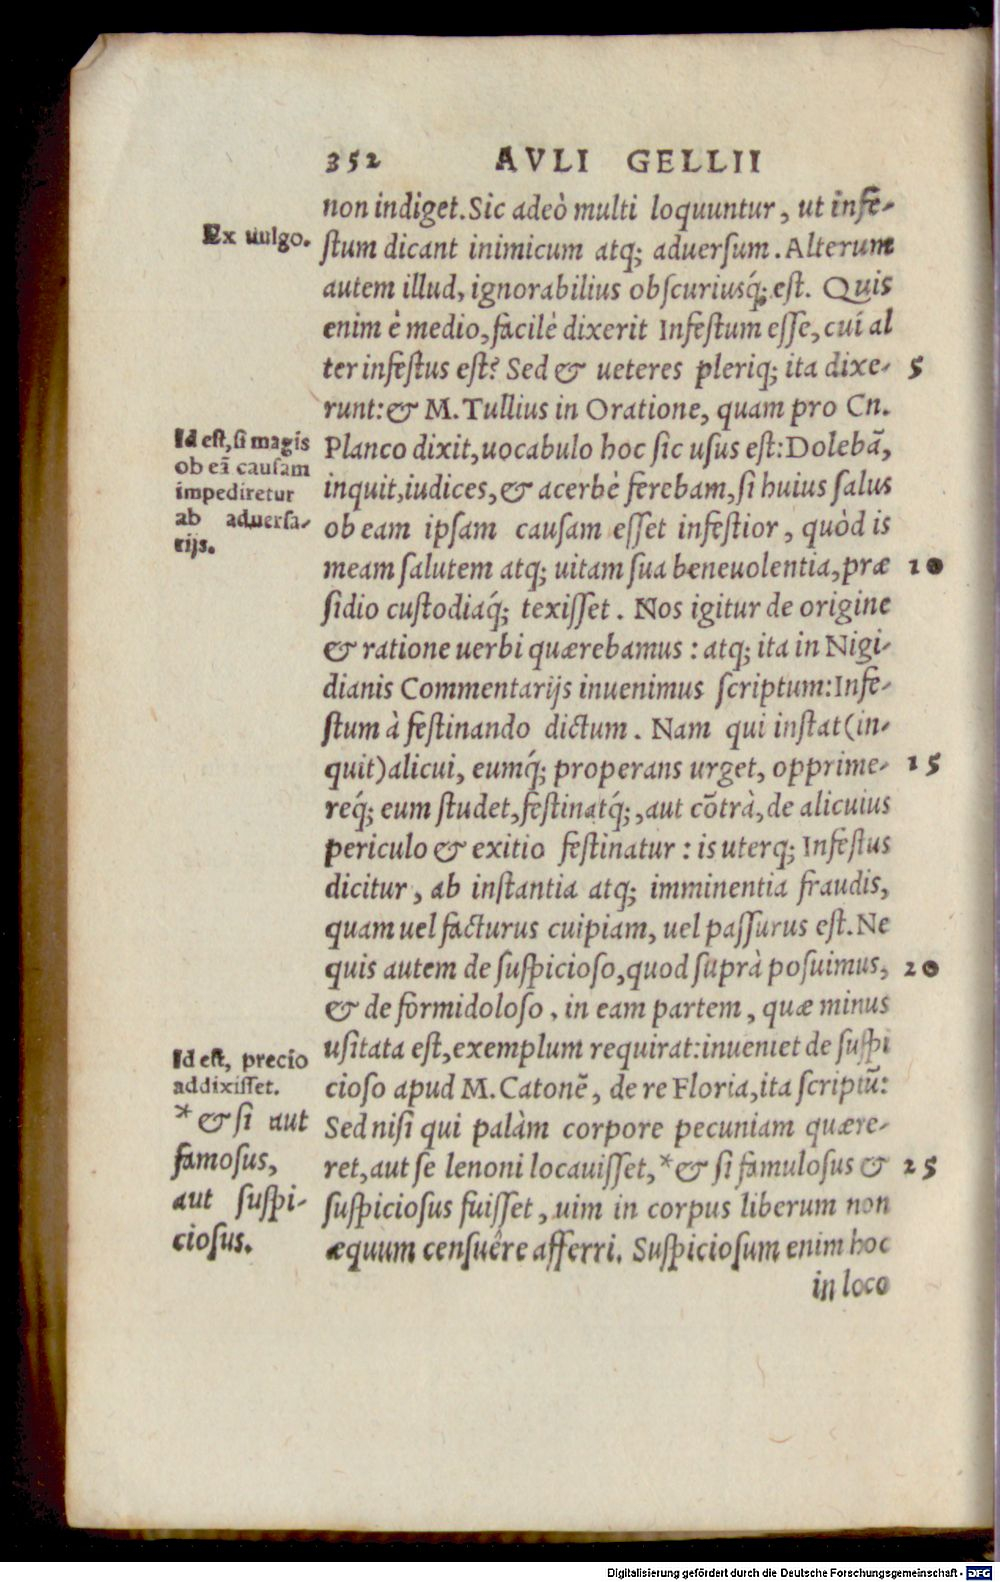 352 AVLI GELLII
non indiget. Sic adeò multi loquuntur, ut infe-
stum dicant inimicum atq; aduersum. Alterum
autem illud, ignorabilius obscuriusq́; est. Quis
enim è medio, facilè dixerit Infestum esse, cui al
ter infestus est? Sed & ueteres pleriq; ita dixe- 5
runt: & M. Tullius in Oratione, quam pro Cn.
Planco dixit, uocabulo hoc sic usus est: Dolebā,
inquit, iudices, & acerbè ferebam, si huius salus
ob eam ipsam causam esset infestior, quòd is
meam salutem atq; uitam sua beneuolentia, præ 10
sidio custodiaq́; texisset. Nos igitur de origine
& ratione uerbi quærebamus: atq; ita in Nigi-
dianis Commentarijs inuenimus scriptum: Infe-
stum à festinando dictum. Nam qui instat (in-
quit) alicui, eumq́; properans urget, opprime- 15
req́; eum studet, festinatq́;, aut cōtrà, de alicuius
periculo & exitio festinatur: is uterq; Infestus
dicitur, ab instantia atq; imminentia fraudis,
quam uel facturus cuipiam, uel passurus est. Ne
quis autem de suspicioso, quod suprà posuimus, 20
& de formidoloso, in eam partem, quæ minus
usitata est, exemplum requirat: inueniet de suspi
cioso apud M. Catonē, de re Floria, ita scriptū:
Sed nisi qui palàm corpore pecuniam quære-
ret, aut se lenoni locauisset, * & si famulosus & 25
suspiciosus fuisset, uim in corpus liberum non
æquum censuêre afferri. Suspiciosum enim hoc
in loco
Ex uulgo.
Id est, si magis
ob eā causam
impediretur
ab aduersa-
rijs.
Id est, precio
addixisset.
* & si aut
famosus,
aut suspi-
ciosus.
Digitalisierung gefördert durch die Deutsche Forschungsgemeinschaft - DFG